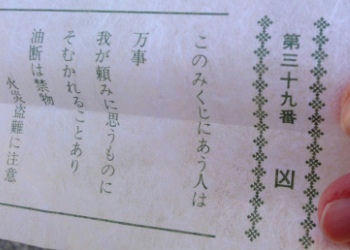 第三十九番 凶
このみくじにあう人は
万事
我が頼みに思うものに
そむかれることあり
油断は禁物
火災盗難に注意